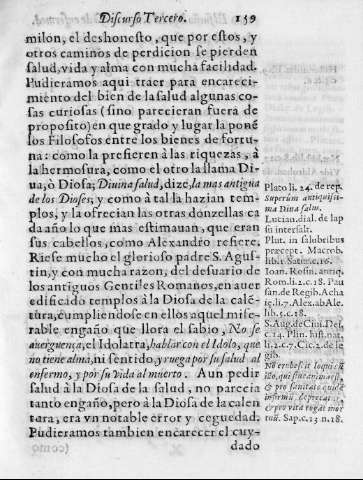 Discurso Tercero. 139
milon, el deshonesto, que por estos, y
otros caminos de perdicion se pierden
salud, vida y alma con mucha facilidad.
Pudieramos aqui traer para encareci-
miẽto del bien de la salud algunas co-
sas curiosas (sino parecieran fuera de
proposito) en que grado y lugar la ponẽ
los Filosofos entre los bienes de fortu-
na: como la prefieren à las riquezas, à
la hermosura, como el otro la llama Di-
ua, ò Diosa; Diuina salud, dize, la mas antigua
de los Dioses; y como à tal la hazian tem-
plos, y la ofrecian las otras donzellas ca
da año lo que mas estimauan, que eran
sus cabellos, como Alexandro refiere.
Riese mucho el glorioso padre S. Agus-
tin, y con mucha razon, del desuario de
los antiguos Gentiles Romanos, en auer
edificado templos à la Diosa de la calẽ-
tura, cumpliendose en ellos aquel mise-
rable engaño que llora el sabio, No se
auerguença, el Idolatra, hablar con el Idolo, que
no tiene alma, ni sentido, y ruega por su salud al
enfermo, y por su vida al muerto. Aun pedir
salud à la Diosa de la salud, no parecia
tanto engaño, pero à la Diosa de la calen
tura, era vn notable error y ceguedad.
Pudieramos tambien encarecer el cuy-
dado
Plato li. 24. de rep.
Superum antiquissi-
ma Diua salus.
Lucian. dial. de lap
su in salut.
Plut. in salubribus
præcept. Macrob.
lib. 1. Satur. c. 16.
Ioan. Rosin. antiq.
Rom. li. 2. c. 18. Pau
san. de Regib. Acha
ię, li. 7. Alex. ab Ale.
lib. 5. c. 18.
S. Aug. de Ciui. Dei,
Plin. hist. nat.
li. 2. c. 7. Cic. 2. de le
gib.
No erubescit loqui cũ
illo, qui sine anima est,
& pro sanitate quidẽ
infirmũ deprecatur,
& pro vita rogat mor
tuũ. Sap. c. 13. n. 18.